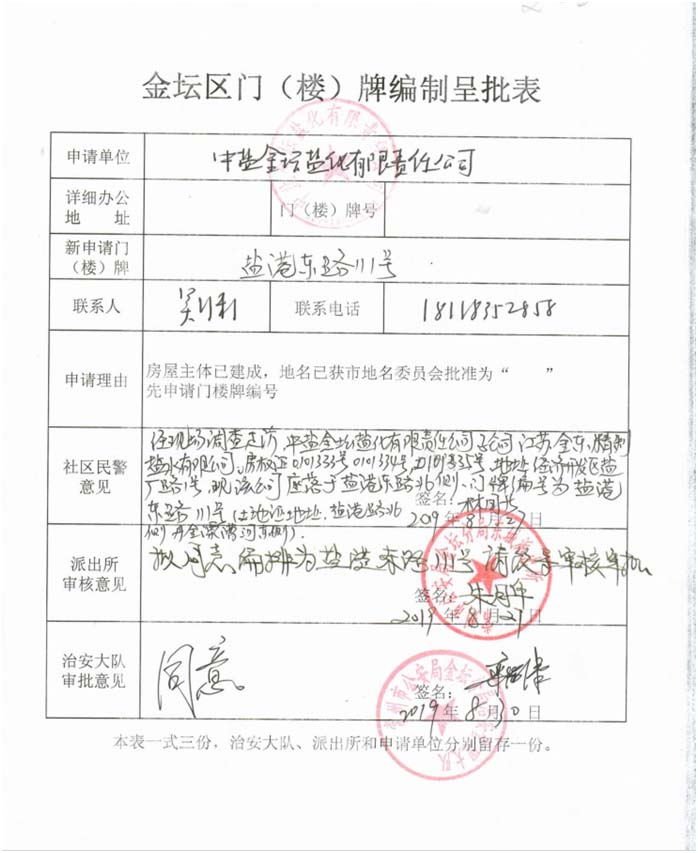 金坛区门（楼）牌编制呈批表
申请单位 中盐金坛盐化有限责任公司
详细办公
地　　址
门（楼）牌号
新申请门
（楼）牌
盐港东路111号
联系人 联系电话 18118352858
申请理由
房屋主体已建成，地名已获市地名委员会批准为“　　”
先申请门楼牌编号
社区民警
意见
经现场调查走访，中盐金坛盐化有限责任公司子公司江苏金东精制
盐水有限公司，房权证0101333号0101334号0101335号，地址经济开发区盐
厂路1号，现该公司座落于盐港东路北侧，门牌编号为盐港
东路111号（土地证地址，盐港路北
侧丹金溧漕河东侧）。
签名：
2019年8月27日
派出所
审核意见
拟同意编排为盐港东路111号，请
审核审批
签名：
2019年8月27日
治安大队
审批意见
同意。
签名：
2019年8月30日
本表一式三份，治安大队、派出所和申请单位分别留存一份。